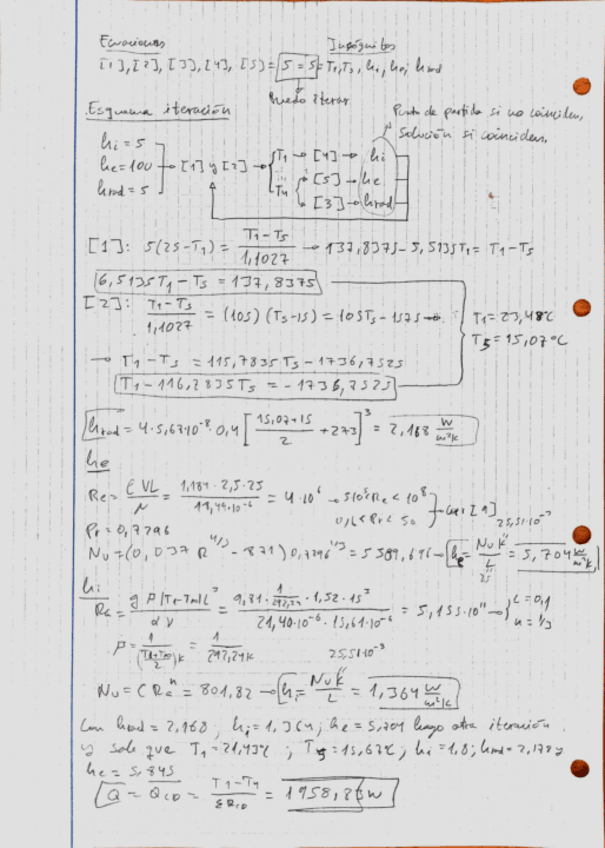 Ecuaciones Incógnitas
[1], [2], [3], [4], [5] = 5 = 5 = T1, T5, hi, he, hrad
Puedo iterar
Esquema iteración
Punto de partida si no coinciden,
Solución si coinciden.
hi = 5
he = 100 → [1] y [2] → T1 → [4] → hi
[5] → he
hrad = 5 T4 [3] → hrad
[1]: 5(25-T1) = (T1-T5)/1,1027 → 137,8375 - 5,5135T1 = T1-T5
6,5135T1 - T5 = 137,8375
[2]: (T1-T5)/1,1027 = (105)(T5-15) = 105T5 - 1575 →
T1 = 23,48ºC
T5 = 15,07ºC
→ T1 - T5 = 115,7835T5 - 1736,7525
T1 - 116,2835T5 = -1736,7525
hrad = 4·5,67·10^-8·0,4[(15,07+15)/2 + 273]^3 = 2,168 W/m²K
he
Re = ρVL/μ = (1,184·2,5·25)/(18,44·10^-6) = 4·10^6 → 5·10^5 < Re < 10^8
0,6 < Pr < 50
[1]
Pr = 0,7296
25,51·10^-3
Nu = (0,037 R^4/5 - 871) 0,7296^1/3 = 5589,696 → he = Nu K/L = 5,704 W/m²K
25
hi
Ra = gβ|T1-T∞|L³/αν = (9,81·(1/292,24)·1,52·15³)/(21,40·10^-6·15,61·10^-6) = 5,155·10^11 → L = 0,1
n = 1/3
β = 1/((T1+T∞)/2)K = 1/292,24K
25,51·10^-3
Nu = C Ra^n = 801,82 → hi = Nu K/L = 1,364 W/m²K
Con hrad = 2,168, hi = 1,364; he = 5,704 hago otra iteración
y sale que T1 = 21,43ºC; T5 = 15,67ºC; hi = 1,8; hrad = 2,178 y
he = 5,845
Q = QCD = (T1-T4)/ΣRCD = 1958,83W